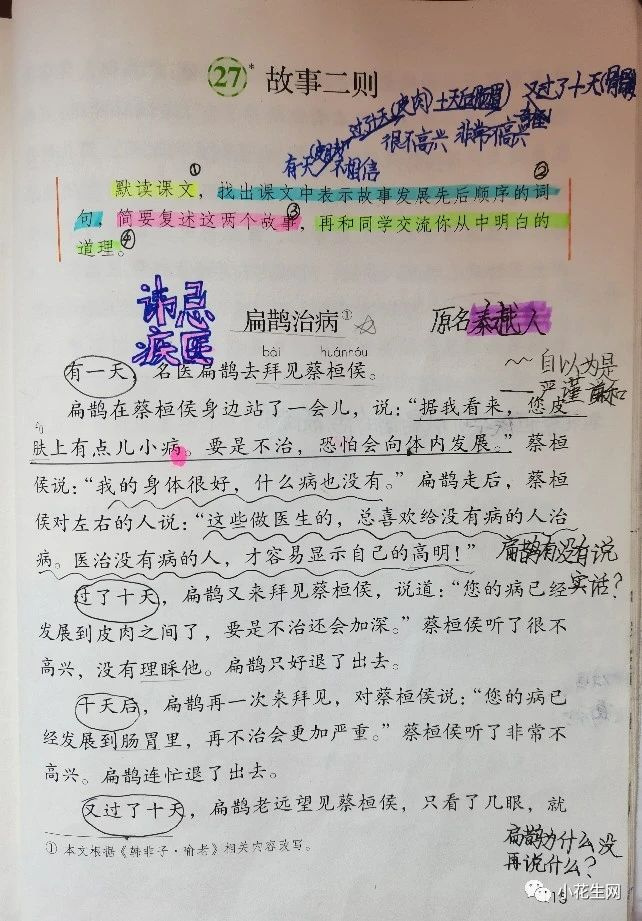 27* 故事二则
过了十天(皮肉) 十天后(肠胃) 又过了十天(骨髓)
很不高兴 非常不高兴
有一天(皮肤) 不相信
① ②
默读课文，找出课文中表示故事发展先后顺序的词
句，简要复述这两个故事③，再和同学交流你从中明白的
道理。④
讳疾忌医
扁鹊治病① ☆ 原名秦越人
bài huánhóu
有一天，名医扁鹊去拜见蔡桓侯。
自以为是
严谨
扁鹊在蔡桓侯身边站了一会儿，说：“据我看来，您皮
肤上有点儿小病。要是不治，恐怕会向体内发展。”蔡桓
侯说：“我的身体很好，什么病也没有。”扁鹊走后，蔡桓
侯对左右的人说：“这些做医生的，总喜欢给没有病的人治
病。医治没有病的人，才容易显示自己的高明！”
扁鹊有没有说
实话？
过了十天，扁鹊又来拜见蔡桓侯，说道：“您的病已经
发展到皮肉之间了，要是不治还会加深。”蔡桓侯听了很不
高兴，没有理睬他。扁鹊只好退了出去。
十天后，扁鹊再一次来拜见，对蔡桓侯说：“您的病已
经发展到肠胃里，再不治会更加严重。”蔡桓侯听了非常不
高兴。扁鹊连忙退了出去。
又过了十天，扁鹊老远望见蔡桓侯，只看了几眼，就
① 本文根据《韩非子·喻老》相关内容改写。
扁鹊为什么没
再说什么？
小花生网